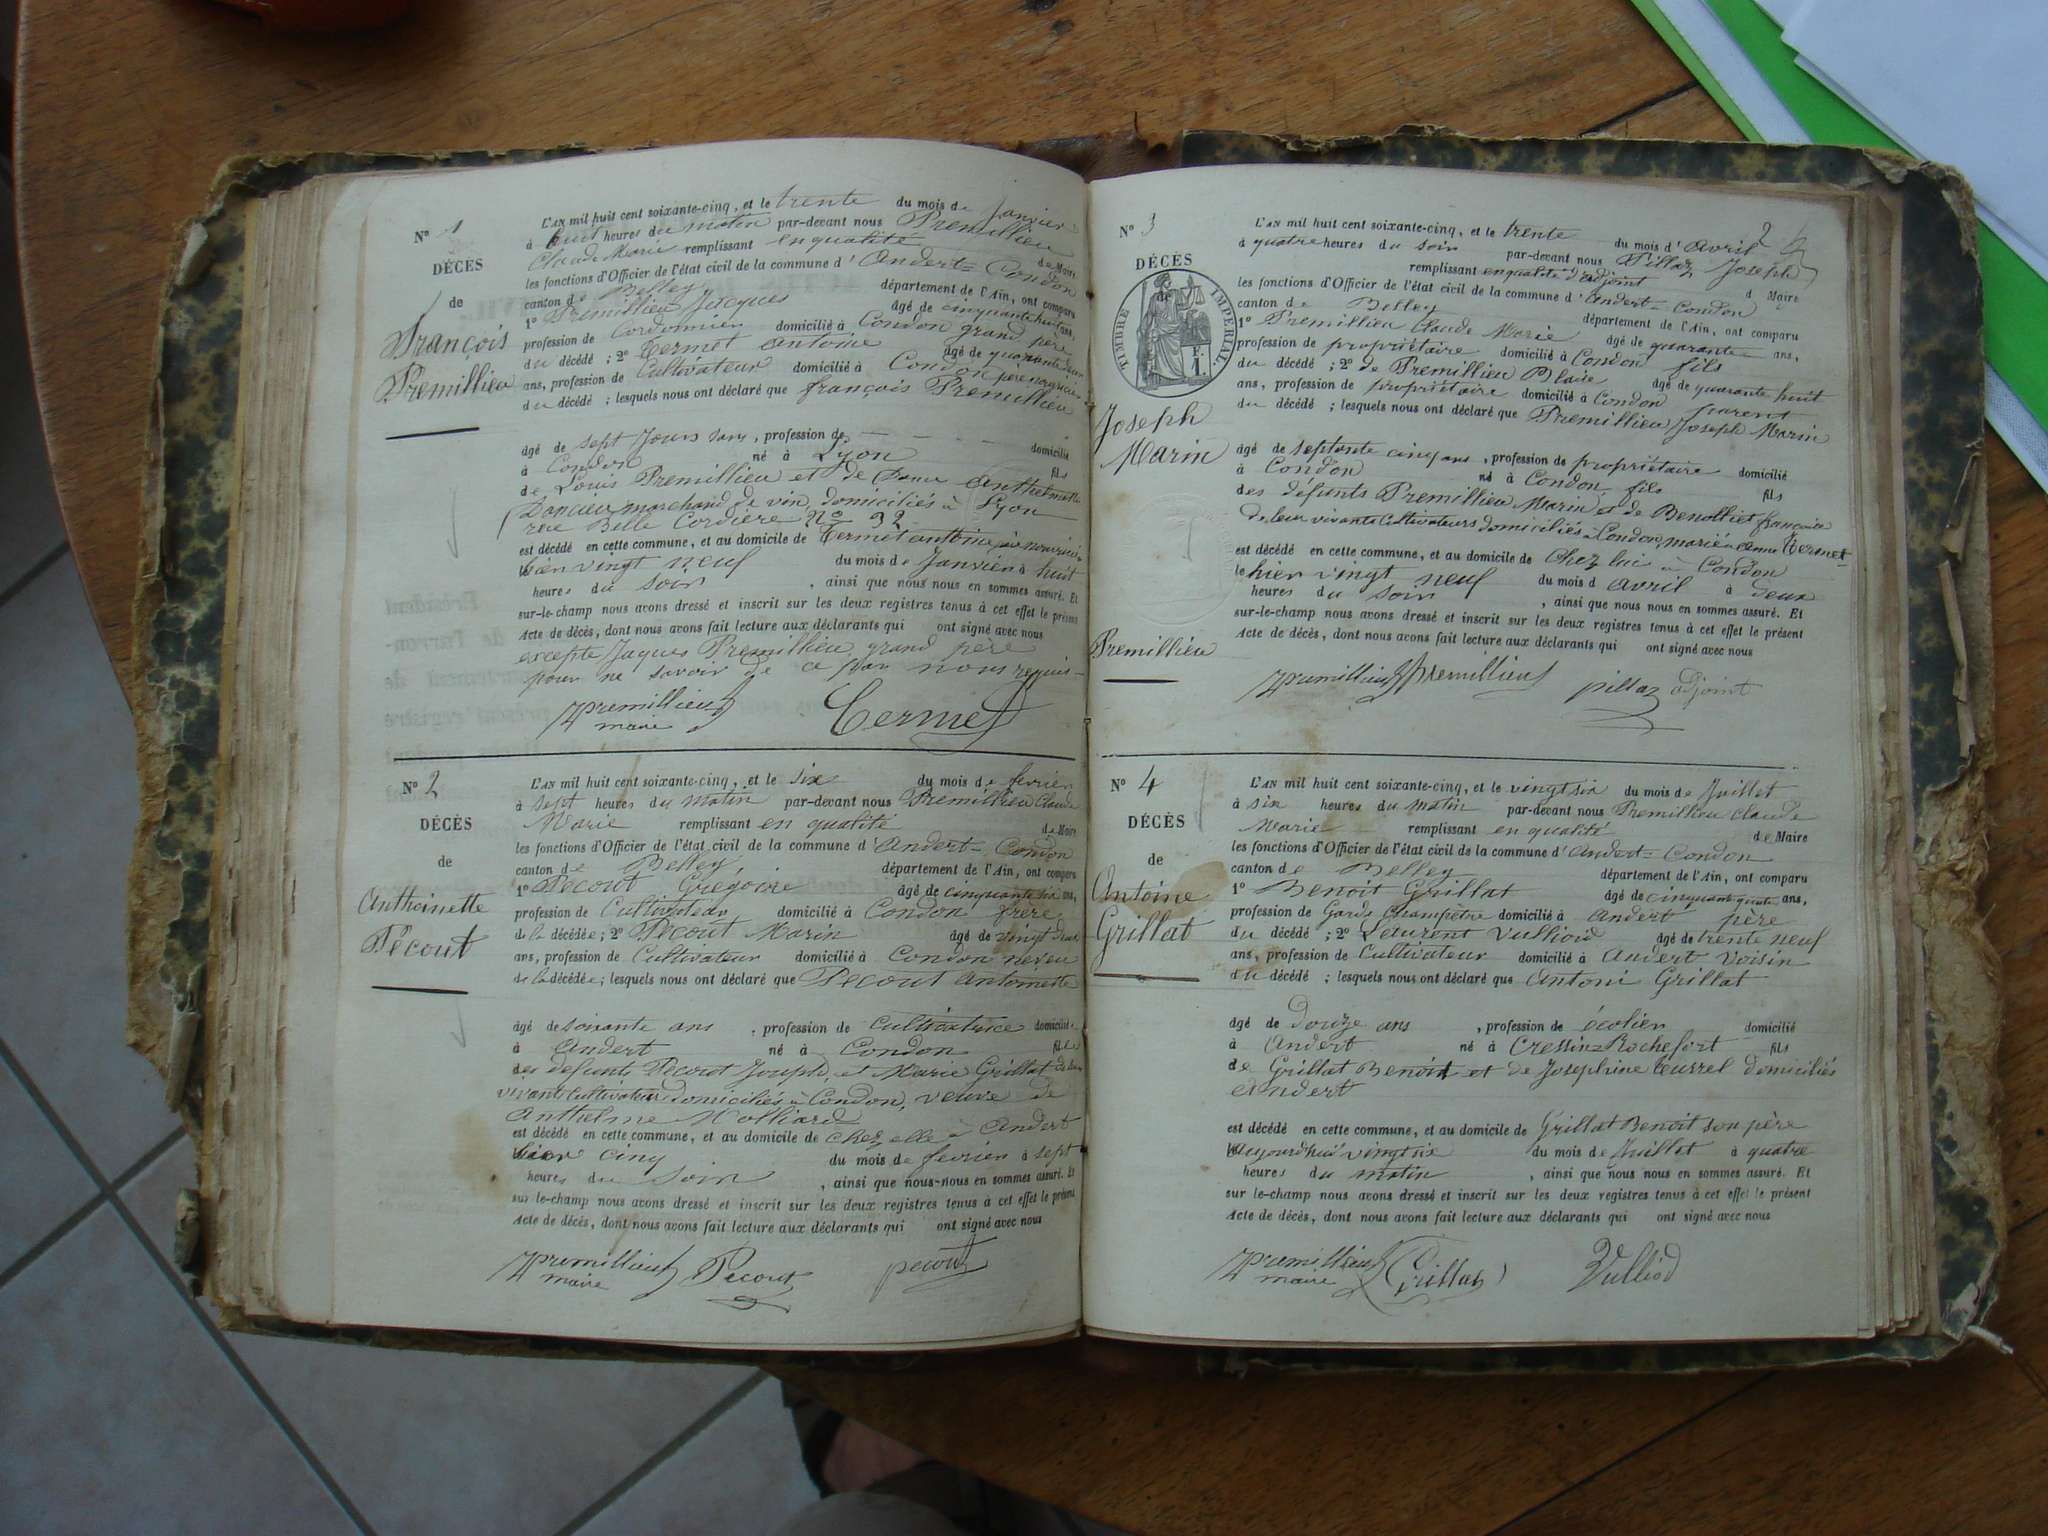 N° 1
DÉCÈS
de
François
Premillieu
L'AN mil huit cent soixante-cinq, et le trente du mois de Janvier
à huit heures du matin par-devant nous Premillieu
Claude Marie remplissant en qualité de Maire
les fonctions d'Officier de l'état civil de la commune d'Andert-Condon
canton de Belley département de l'Ain, ont comparu
1° Premillieu Jacques âgé de cinquante huit ans,
profession de Cordonnier domicilié à Condon grand père
du décédé ; 2° Termet antoine âgé de quarante
ans, profession de Cultivateur domicilié à Condon père nourricier
du décédé ; lesquels nous ont déclaré que françois Premillieu
âgé de sept Jours , profession de domicilié
à Condon né à Lyon fils
de Louis Premillieu et de Anthelmette
marchand de vin domiciliés à Lyon
rue Belle Cordière N° 32
est décédé en cette commune, et au domicile de Termet antoine père nourricier
hier vingt neuf du mois de Janvier à huit
heures du soir , ainsi que nous nous en sommes assuré. Et
sur-le-champ nous avons dressé et inscrit sur les deux registres tenus à cet effet le présent
Acte de décès, dont nous avons fait lecture aux déclarants qui ont signé avec nous
excepte Jaques Premillieu grand père
pour ne savoir de ce par nous requis
premillieu
maire
Termet
N° 2
DÉCÈS
de
Anthoinette
Pécout
L'AN mil huit cent soixante-cinq, et le six du mois de fevrier
à sept heures du matin par-devant nous Premillieu Claude
Marie remplissant en qualité de Maire
les fonctions d'Officier de l'état civil de la commune d'Andert-Condon
canton de Belley département de l'Ain, ont comparu
1° Pecout Grégoire âgé de cinquante six ans,
profession de Cultivateur domicilié à Condon frère
de la décédée ; 2° Pecout Marin âgé de vingt
ans, profession de Cultivateur domicilié à Condon neveu
de la décédée ; lesquels nous ont déclaré que Pecout Antoinette
âgé de soixante ans , profession de cultivatrice domicilié
à Andert né à Condon fille
des defunts Pecout Joseph et Marie Grillat de leur
vivant Cultivateurs domiciliés à Condon, veuve de
Anthelme Molliard
est décédé en cette commune, et au domicile de chez elle à Andert
hier cinq du mois de fevrier à sept
heures du soir , ainsi que nous-nous en sommes assuré. Et
sur le-champ nous avons dressé et inscrit sur les deux registres tenus à cet effet le présent
Acte de décès, dont nous avons fait lecture aux déclarants qui ont signé avec nous
premillieu
maire
Pecout
pecout
N° 3
DÉCÈS
TIMBRE IMPERIAL
F.
1.
Joseph
Marin
Premillieu
L'AN mil huit cent soixante-cinq, et le trente du mois d'Avril
à quatre heures du soir par-devant nous Pillaz Joseph
remplissant en qualité d'adjoint d Maire
les fonctions d'Officier de l'état civil de la commune d'Andert-Condon
canton de Belley département de l'Ain, ont comparu
1° Premillieu Claude Marie âgé de quarante ans,
profession de propriétaire domicilié à Condon fils
du décédé ; 2° de Premillieu Blaise âgé de quarante huit
ans, profession de propriétaire domicilié à Condon parent
du décédé ; lesquels nous ont déclaré que Premillieu Joseph Marin
âgé de septante cinq ans , profession de propriétaire domicilié
à Condon né à Condon fils fils
des défunts Premillieu Marin et de Benolliet françoise
de leur vivants Cultivateurs domiciliés à Condon, marié à Termet
est décédé en cette commune, et au domicile de Chez lui à Condon
le hier vingt neuf du mois d avril à deux
heures du soir , ainsi que nous nous en sommes assuré. Et
sur-le-champ nous avons dressé et inscrit sur les deux registres tenus à cet effet le présent
Acte de décès, dont nous avons fait lecture aux déclarants qui ont signé avec nous
premillieu Premillieu pillaz adjoint
N° 4
DÉCÈS
de
Antoine
Grillat
L'AN mil huit cent soixante-cinq, et le vingt six du mois de Juillet
à six heures du matin par-devant nous Premillieu Claude
Marie remplissant en qualité de Maire
les fonctions d'Officier de l'état civil de la commune d'Andert-Condon
canton de Belley département de l'Ain, ont comparu
1° Benoit Grillat âgé de cinquante quatre ans,
profession de Garde Champêtre domicilié à Andert père
du décédé ; 2° Laurent Vulliod âgé de trente neuf
ans, profession de Cultivateur domicilié à Andert Voisin
du décédé ; lesquels nous ont déclaré que Antoni Grillat
âgé de Douze ans , profession de écolier domicilié
à Andert né à Cressin-Rochefort fils
de Grillat Benoit et de Josephine domiciliés
Andert
est décédé en cette commune, et au domicile de Grillat Benoit son père
aujourdhui vingt six du mois de Juillet à quatre
heures du matin , ainsi que nous nous en sommes assuré. Et
sur le-champ nous avons dressé et inscrit sur les deux registres tenus à cet effet le présent
Acte de décès, dont nous avons fait lecture aux déclarants qui ont signé avec nous
premillieu
maire
Grillat
Vulliod